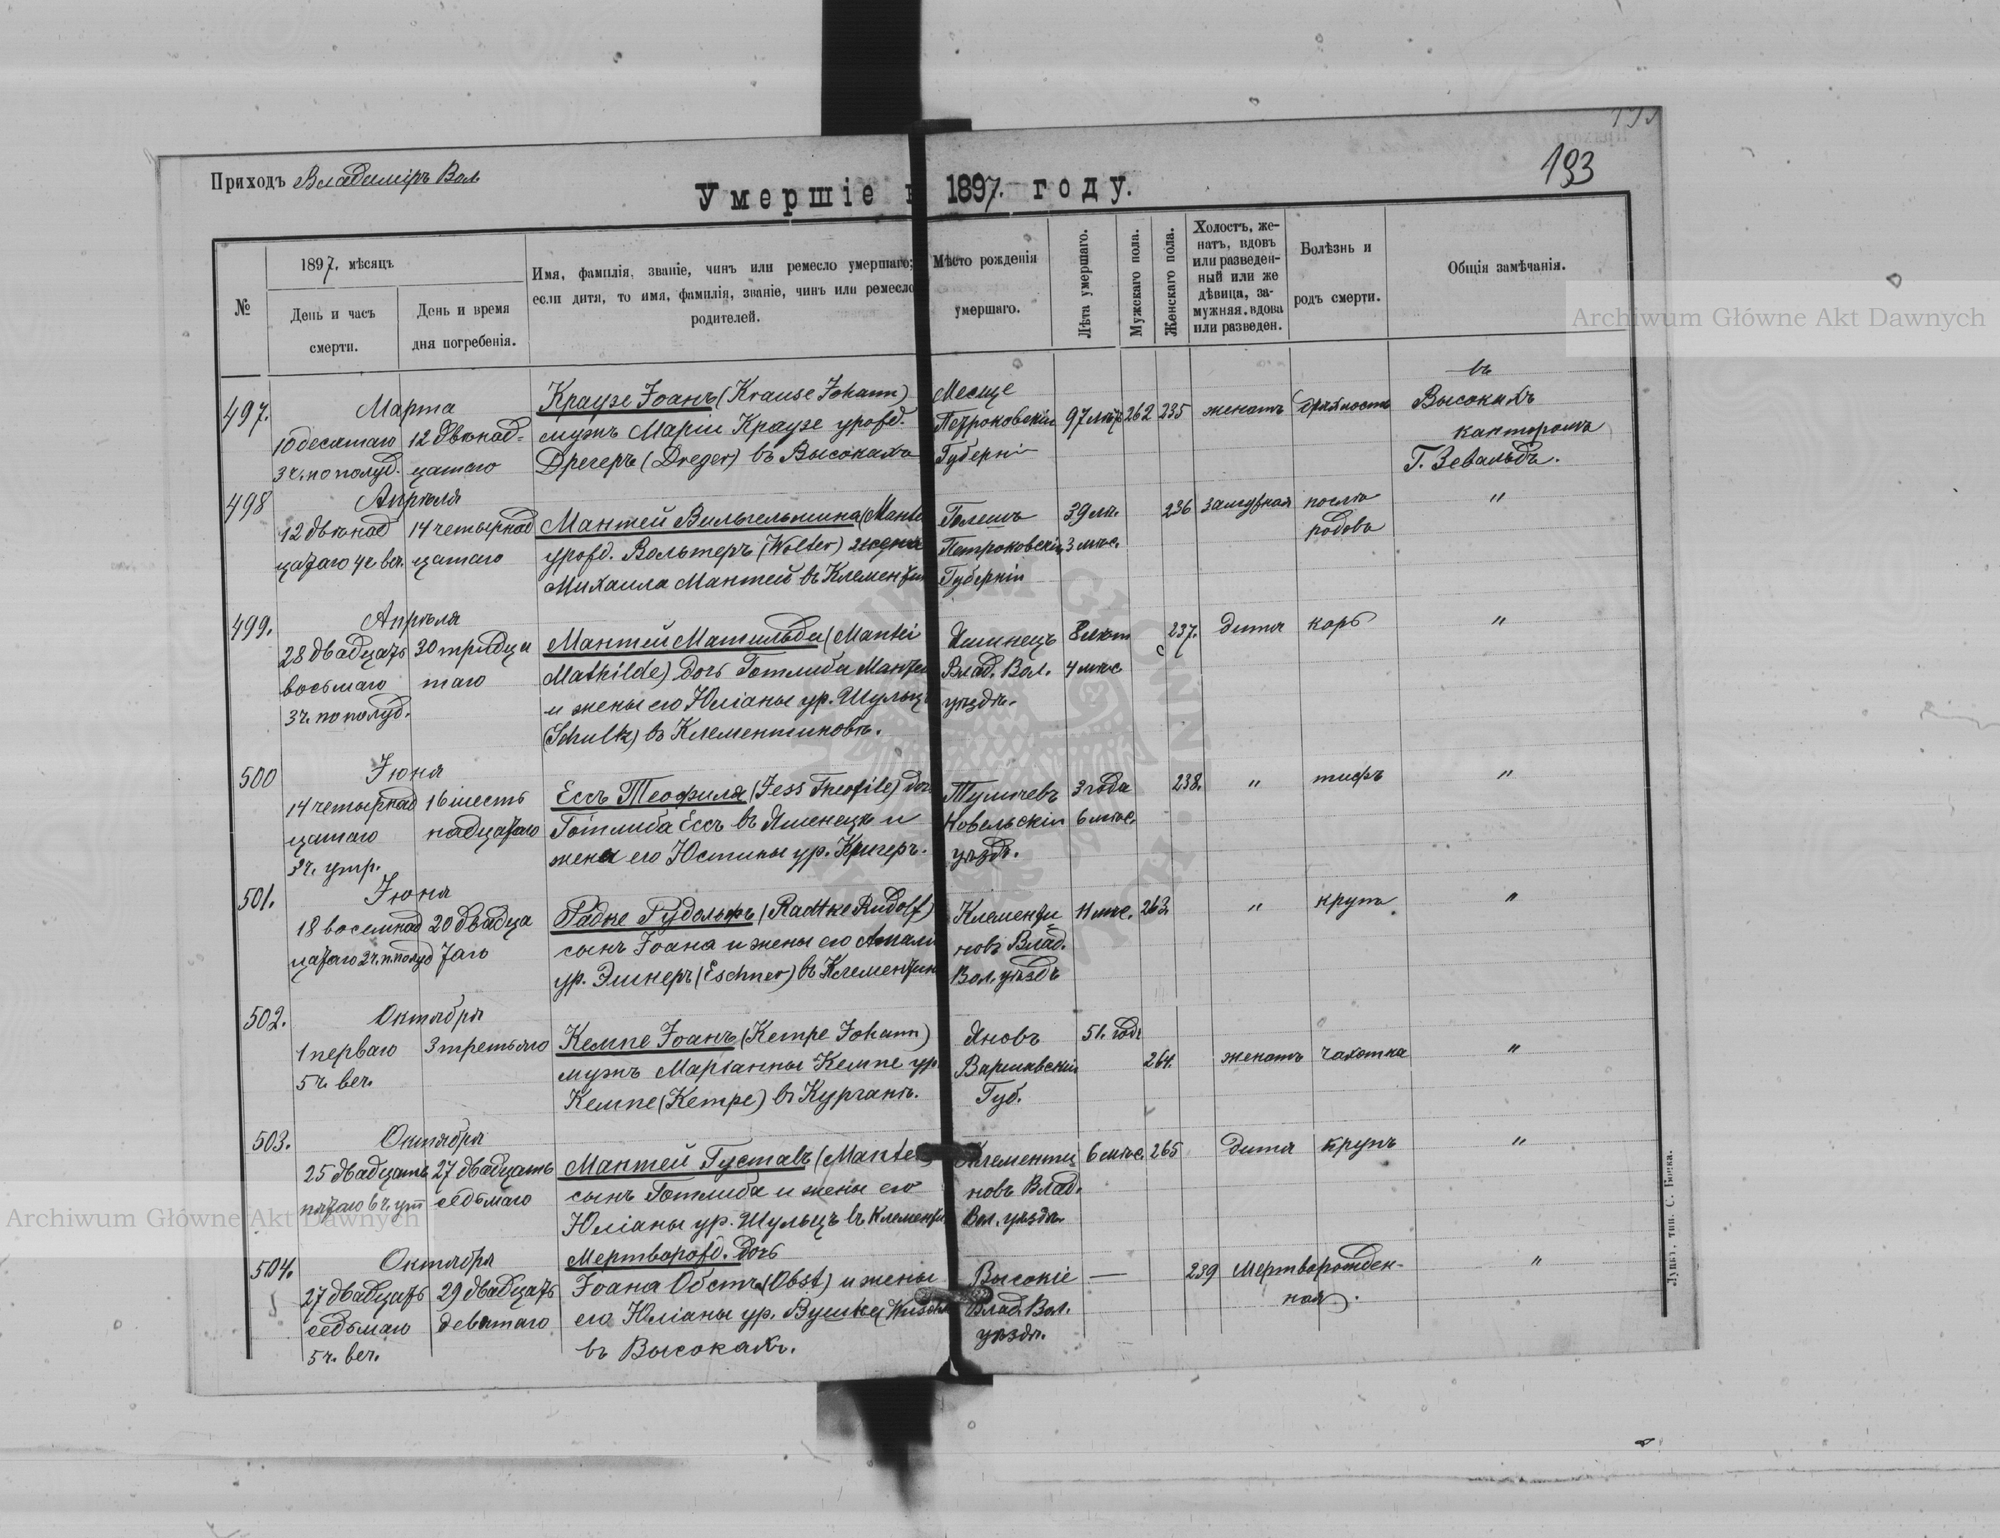 193
Приходъ Владимiръ Вол
Умершіе 1897. году.
№
1897. мѣсяцъ
День и часъ смерти.
День и время дня погребенія.
Имя, фамилія, званіе, чинъ или ремесло умершаго; если дитя, то имя, фамилія, званіе, чинъ или ремесло родителей.
Мѣсто рожденія умершаго.
Лѣта умершаго.
Мужскаго пола.
Женскаго пола.
Холостъ, женатъ, вдовъ или разведенный или же дѣвица, замужняя, вдова или разведен.
Болѣзнь и родъ смерти.
Общія замѣчанія.
497.
Марта
10 десятаго
3 ч. по полуд.
12 двѣнад=
цатаго
Краузе Іоанъ (Krause Johann)
мужъ Маріи Краузе урожд.
Дрегеръ (Dreger) въ Высокахъ
Петроковскiй
Губернiи
97 лѣт
262
235
женатъ
дряхлость
въ
Высокахъ
канторомъ
Г. Зевальдъ.
498
Апрѣля
12 двѣнад
цатаго 4 ч веч.
14 четырнад
цатаго
Мантей Вильгельмина (Mante
урожд. Вольтеръ (Wolter) жена
Михаила Мантей въ Клементин
Петроковскiй
Губернiи
39 лѣ.
3 мѣс.
236
замужная
послѣ
родовъ
"
499.
Апрѣля
28 двадцать
восьмаго
3 ч. по полуд.
30 тридца
таго
Мантей Матильда (Mantei
Mathilde) дочь Готлиба Мантей
и жены его Юліаны ур. Шульц
(Schultz) въ Клементиновѣ.
Яминецъ
Влад. Вол.
уѣздѣ.
8 лѣт
4 мѣс
237.
дитя
корь
"
500
Іюня
14 четырнад
цатаго
3 ч. утр.
16 шест
надцатаго
Ессъ Теофиля (Jess Theofile) доч
Готлиба Ессъ въ Яменецѣ и
жена его Юстины ур. Кригеръ.
Туличевъ
Ковельскiй
уѣздъ.
3 года
6 мѣс.
238.
"
тифъ
"
501.
Іюня
18 восемнад
цатаго 2 ч. п. полуд
20 двадца
таго
Радке Рудольфъ (Radtke Rudolf)
сынъ Іоана и жены его Амалі
ур. Эшнеръ (Eschner) въ Клементин
Клементи
новъ Влад.
Вол. уѣздъ
11 мѣс.
263.
"
крупъ
"
502.
Октября
1 перваго
5 ч. веч.
3 третьяго
Кемпе Іоанъ (Kempe Johann)
мужъ Маріанны Кемпе ур.
Кемпе (Kempe) въ Курганѣ.
Яновъ
Варшавскiй
Губ.
51. годъ
264.
женатъ
чахотка
"
503.
Октября
25 двадцать
пятаго 6 ч. ут
27 двадцать
седьмаго
Мантей Густавъ (Mante
сынъ Готлиба и жены его
Юліаны ур. Шульцъ въ Клементи
Клементи
новъ Влад.
Вол. уѣздъ.
6 мѣс.
265
дитя
крупъ
"
504.
Октября
27 двадцать
седьмаго
5 ч. веч.
29 двадцать
девятаго
Мертворожд. дочь
Іоана Обстъ (Obst) и жены
его Юліаны ур. Вушке (Wusch
въ Высокахъ.
Высокіе
Влад. Вол.
уѣздъ.
—
239
Мертворожден-
ная.
"
Archiwum Główne Akt Dawnych
Archiwum Główne Akt Dawnych